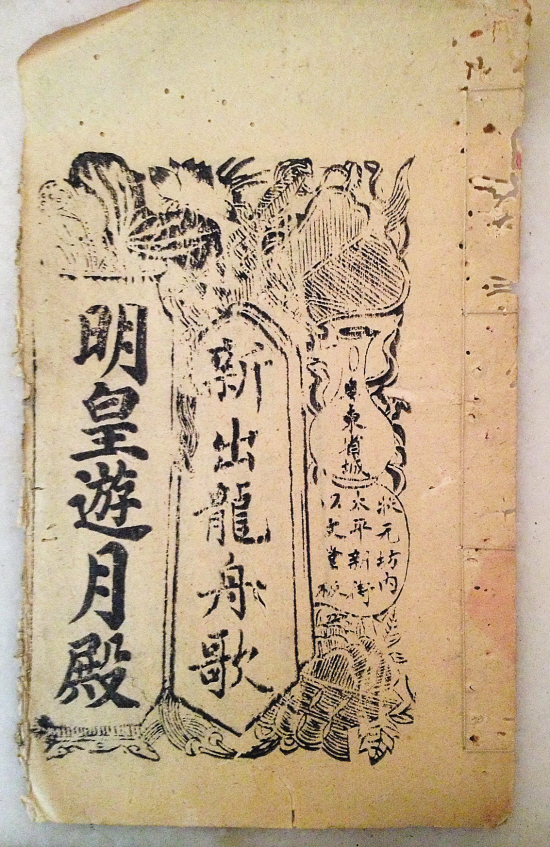 東省城
狀元坊內
太平新街
以文堂板
新出龍舟歌
明皇遊月殿